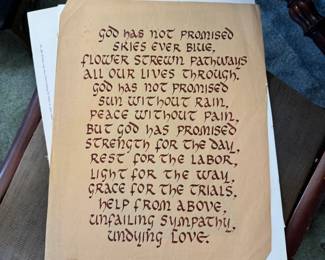 God has not promised
skies ever blue,
flower strewn pathways
all our lives through.
God has not promised
sun without rain,
peace without pain,
But God has promised
strength for the day,
rest for the labor,
light for the way,
grace for the trials,
help from above,
unfailing sympathy,
undying love.